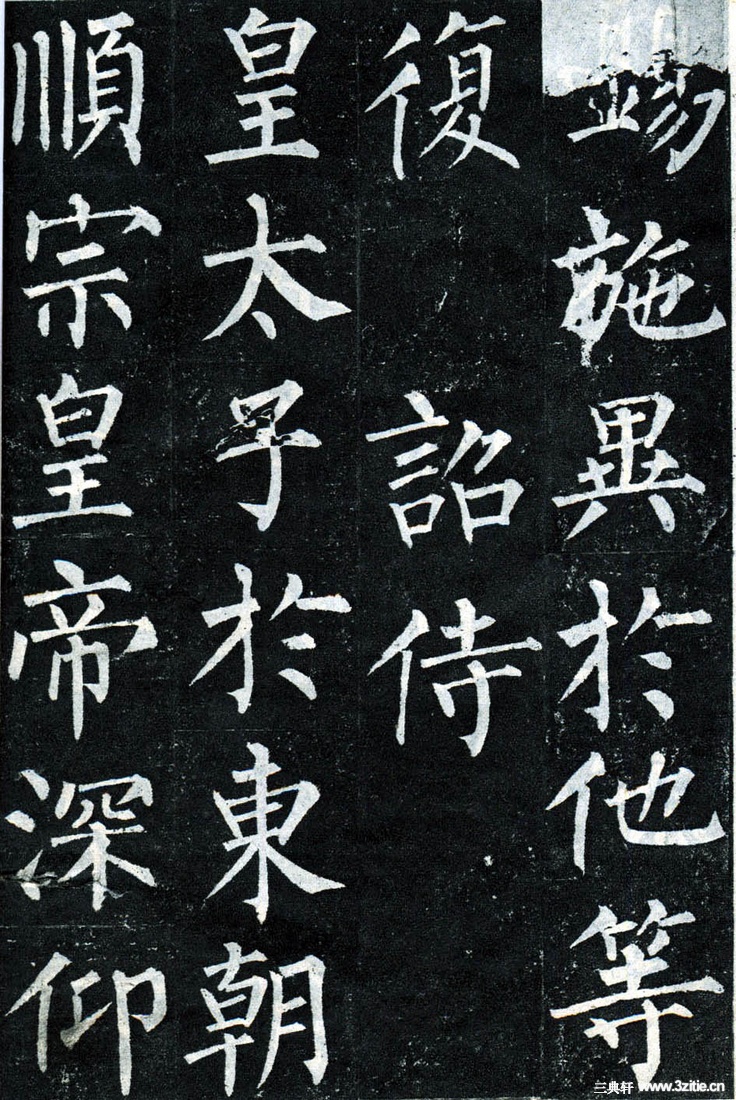 錫施異於他等
復 詔侍
皇太子於東朝
順宗皇帝深仰
三典轩 www.3zitie.cn